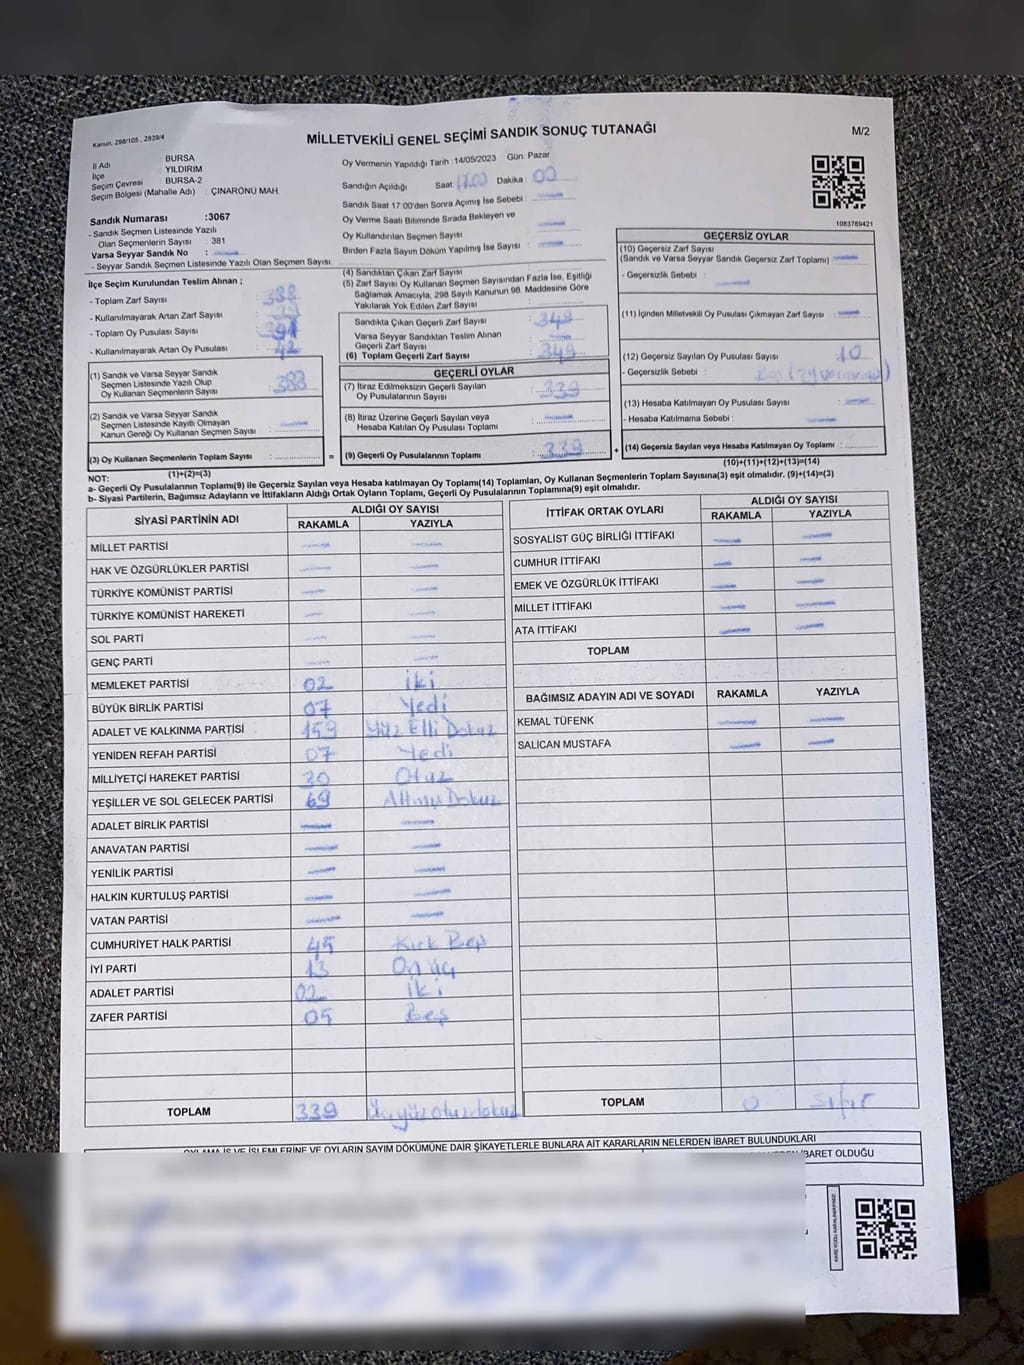 Kanun, 298/105 , 2839/4
MİLLETVEKİLİ GENEL SEÇİMİ SANDIK SONUÇ TUTANAĞI
M/2
İl Adı : BURSA
İlçe : YILDIRIM
Seçim Çevresi : BURSA-2
Seçim Bölgesi (Mahalle Adı) : ÇINARÖNÜ MAH.
Sandık Numarası :3067
- Sandık Seçmen Listesinde Yazılı
Olan Seçmenlerin Sayısı : 381
Varsa Seyyar Sandık No :
- Seyyar Sandık Seçmen Listesinde Yazılı Olan Seçmen Sayısı
Oy Vermenin Yapıldığı Tarih : 14/05/2023 Gün: Pazar
Sandığın Açıldığı Saat: 17.00 Dakika : 00
Sandık Saat 17:00'den Sonra Açımış İse Sebebi :
Oy Verme Saati Bitiminde Sırada Bekleyen ve
Oy Kullandırılan Seçmen Sayısı
Birden Fazla Sayım Döküm Yapılmış İse Sayısı :
1083789421
İlçe Seçim Kurulundan Teslim Alınan ;
- Toplam Zarf Sayısı : 388
- Kullanılmayarak Artan Zarf Sayısı :
- Toplam Oy Pusulası Sayısı : 391
- Kullanılmayarak Artan Oy Pusulası : 42
(1) Sandık ve Varsa Seyyar Sandık
Seçmen Listesinde Yazılı Olup
Oy Kullanan Seçmenlerin Sayısı : 388
(2) Sandık ve Varsa Seyyar Sandık
Seçmen Listesinde Kayıtlı Olmayan
Kanun Gereği Oy Kullanan Seçmen Sayısı :
(3) Oy Kullanan Seçmenlerin Toplam Sayısı :
(1)+(2)=(3)
(4) Sandıktan Çıkan Zarf Sayısı :
(5) Zarf Sayısı Oy Kullanan Seçmen Sayısından Fazla İse, Eşitliği
Sağlamak Amacıyla, 298 Sayılı Kanunun 98. Maddesine Göre
Yakılarak Yok Edilen Zarf Sayısı :
Sandıkta Çıkan Geçerli Zarf Sayısı : 349
Varsa Seyyar Sandıktan Teslim Alınan
Geçerli Zarf Sayısı :
(6) Toplam Geçerli Zarf Sayısı : 349
GEÇERLİ OYLAR
(7) İtiraz Edilmeksizin Geçerli Sayılan
Oy Pusulalarının Sayısı : 339
(8) İtiraz Üzerine Geçerli Sayılan veya
Hesaba Katılan Oy Pusulası Toplamı :
= (9) Geçerli Oy Pusulalarının Toplamı : 339 +
GEÇERSİZ OYLAR
(10) Geçersiz Zarf Sayısı
(Sandık ve Varsa Seyyar Sandık Geçersiz Zarf Toplamı)
- Geçersizlik Sebebi :
(11) İçinden Milletvekili Oy Pusulası Çıkmayan Zarf Sayısı :
(12) Geçersiz Sayılan Oy Pusulası Sayısı : 10
- Geçersizlik Sebebi :
(13) Hesaba Katılmayan Oy Pusulası Sayısı :
- Hesaba Katılmama Sebebi :
(14) Geçersiz Sayılan veya Hesaba Katılmayan Oy Toplamı :
(10)+(11)+(12)+(13)=(14)
NOT:
a- Geçerli Oy Pusulalarının Toplamı(9) ile Geçersiz Sayılan veya Hesaba katılmayan Oy Toplamı(14) Toplamları, Oy Kullanan Seçmenlerin Toplam Sayısına(3) eşit olmalıdır. (9)+(14)=(3)
b- Siyasi Partilerin, Bağımsız Adayların ve İttifakların Aldığı Ortak Oyların Toplamı, Geçerli Oy Pusulalarının Toplamına(9) eşit olmalıdır.
SİYASİ PARTİNİN ADI
ALDIĞI OY SAYISI
RAKAMLA YAZIYLA
MİLLET PARTİSİ
HAK VE ÖZGÜRLÜKLER PARTİSİ
TÜRKİYE KOMÜNİST PARTİSİ
TÜRKİYE KOMÜNİST HAREKETİ
SOL PARTİ
GENÇ PARTİ
MEMLEKET PARTİSİ 02 iki
BÜYÜK BİRLİK PARTİSİ 07 Yedi
ADALET VE KALKINMA PARTİSİ 159 Yüz Elli Dokuz
YENİDEN REFAH PARTİSİ 07 Yedi
MİLLİYETÇİ HAREKET PARTİSİ 30 Otuz
YEŞİLLER VE SOL GELECEK PARTİSİ 69 Altmış Dokuz
ADALET BİRLİK PARTİSİ
ANAVATAN PARTİSİ
YENİLİK PARTİSİ
HALKIN KURTULUŞ PARTİSİ
VATAN PARTİSİ
CUMHURİYET HALK PARTİSİ 45 Kırk Beş
İYİ PARTİ 13 On üç
ADALET PARTİSİ 02 iki
ZAFER PARTİSİ 05 Beş
TOPLAM 339 Üçyüz otuz dokuz
İTTİFAK ORTAK OYLARI
ALDIĞI OY SAYISI
RAKAMLA YAZIYLA
SOSYALİST GÜÇ BİRLİĞİ İTTİFAKI
CUMHUR İTTİFAKI
EMEK VE ÖZGÜRLÜK İTTİFAKI
MİLLET İTTİFAKI
ATA İTTİFAKI
TOPLAM
BAĞIMSIZ ADAYIN ADI VE SOYADI RAKAMLA YAZIYLA
KEMAL TÜFENK
SALİCAN MUSTAFA
TOPLAM 0 sıfır
OYLAMA İŞ VE İŞLEMLERİNE VE OYLARIN SAYIM DÖKÜMÜNE DAİR ŞİKAYETLERLE BUNLARA AİT KARARLARIN NELERDEN İBARET BULUNDUKLARI
İBARET OLDUĞU